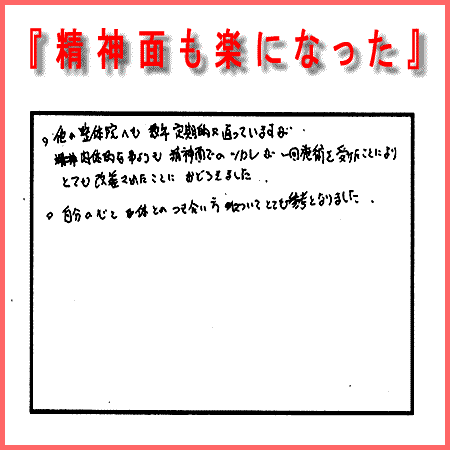 『精神面も楽になった』
。他の整体院へも数年定期的に通っていますが
肉体的な事よりも精神面でのツカレが一回施術を受けたことにより
とても改善されたことにおどろきました。
。自分の心と体とのつき合い方についてとても参考となりました。